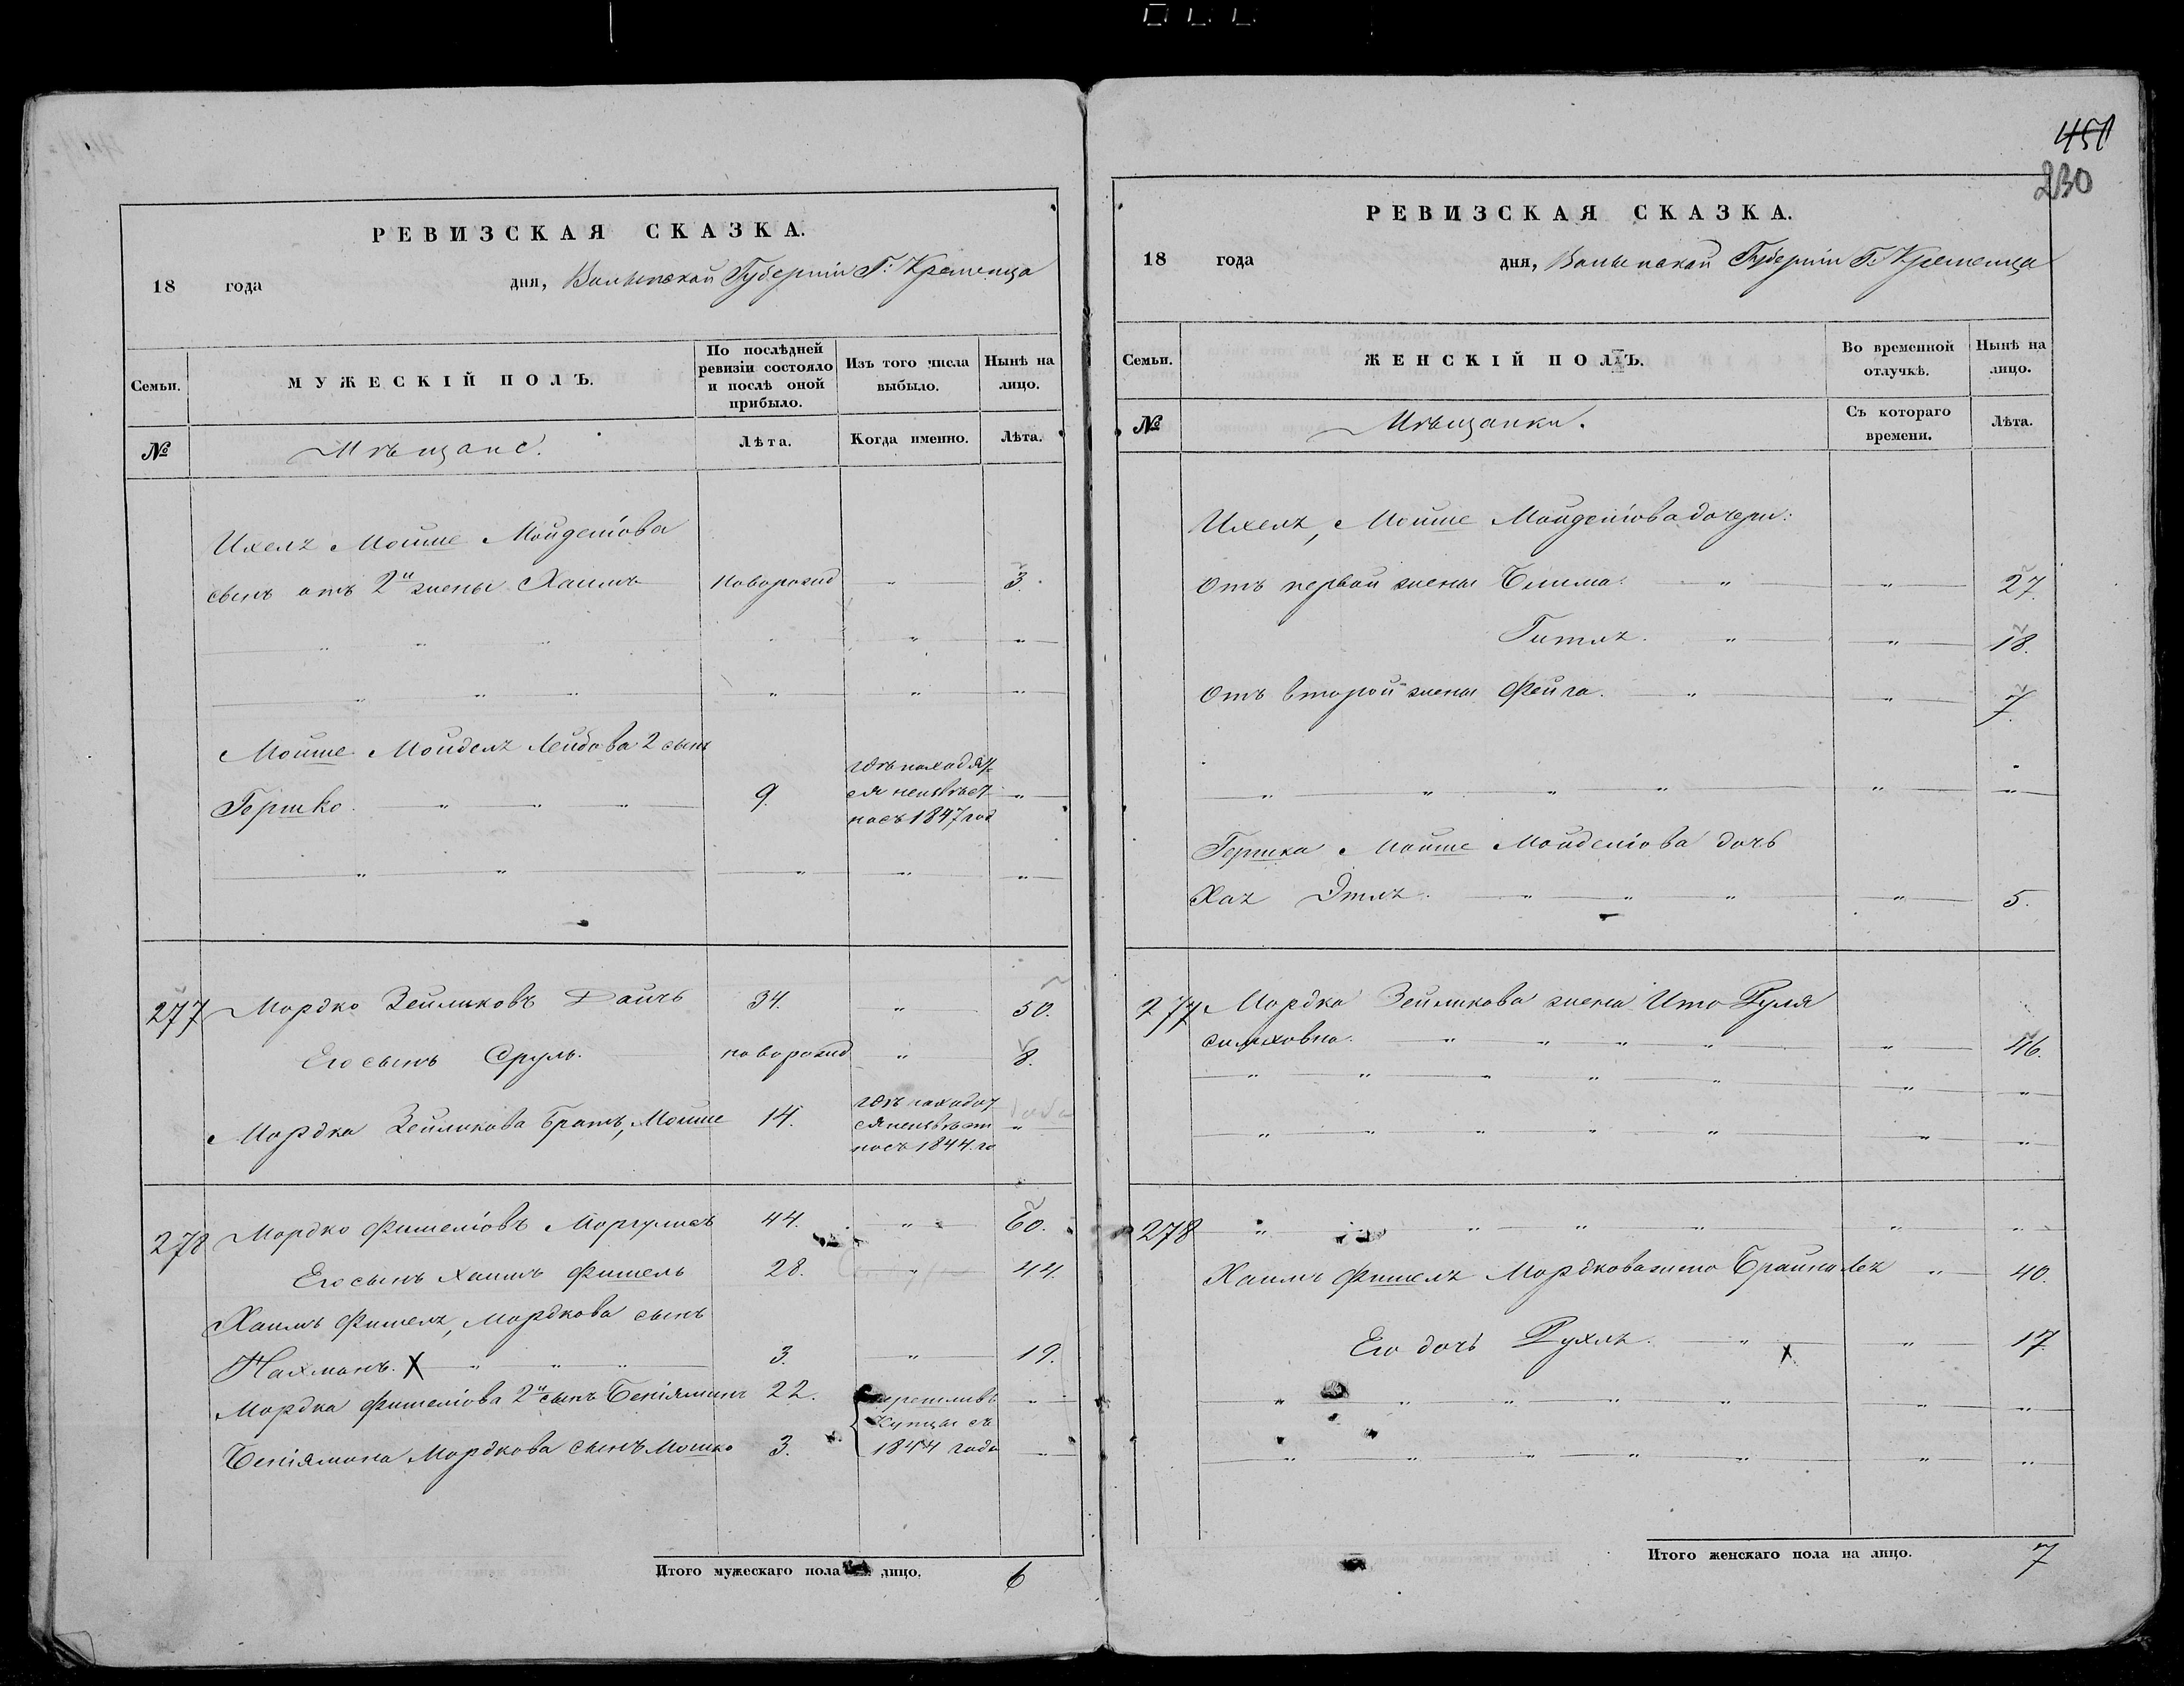 РЕВИЗСКАЯ СКАЗКА.
18 года дня, Волынской Губернiи Г: Кременца
Семьи. МУЖЕСКIЙ ПОЛЪ. По послѣдней ревизiи состояло и послѣ оной прибыло. Изъ того числа выбыло. Нынѣ на лицо.
№ Мѣщане. Лѣта. Когда именно. Лѣта.
Ихель Мойше Мойделiова
сынъ отъ 2й жены Хаимъ новорожд " 3.
Мойше Мойдель Лейбова 2 сынъ
Гершко. 9. гдѣ находит
ся неизвѣст
но съ 1847 год
277 Мордко Зейликовъ Дайчъ 34. " 50.
Его сынъ Сруль. новорожд " 8.
Мордка Зейликова братъ, Мойше 14. гдѣ находит
ся неизвѣст
но съ 1844. го
278 Мордко Фишелiовъ Моргулисъ 44. " 60.
Его сынъ Хаимъ Фишель 28. " 44.
Хаимъ Фишеля, Мордкова сынъ
Нахманъ. X 3. " 19.
Мордка Фишелiова 2й сынъ Бенiяминъ 22.
Бенiямина Мордкова сынъ Мошко 3. купцы съ
1844 года
Итого мужескаго пола на лицо. 6
451
230
РЕВИЗСКАЯ СКАЗКА.
18 года дня, Волынской Губернiи Г. Кременца
Семьи. ЖЕНСКIЙ ПОЛЪ. Во временной отлучкѣ. Нынѣ на лицо.
№ Мѣщанки. Съ котораго времени. Лѣта.
Ихеля, Мойше Мойделiова дочери:
отъ первой жены Сима. " 27.
Гитля. " 18.
отъ второй жены Фейга. " 7.
Гершка Мойше Мойделiова дочь
Хая Этля. " 5.
277 Мордка Зейликова жена Ита Руля
" 46.
278
Хаима Фишеля Мордкова жена Брайна Лея " 40.
Его дочь Рухля. X " 17
Итого женскаго пола на лицо. 7